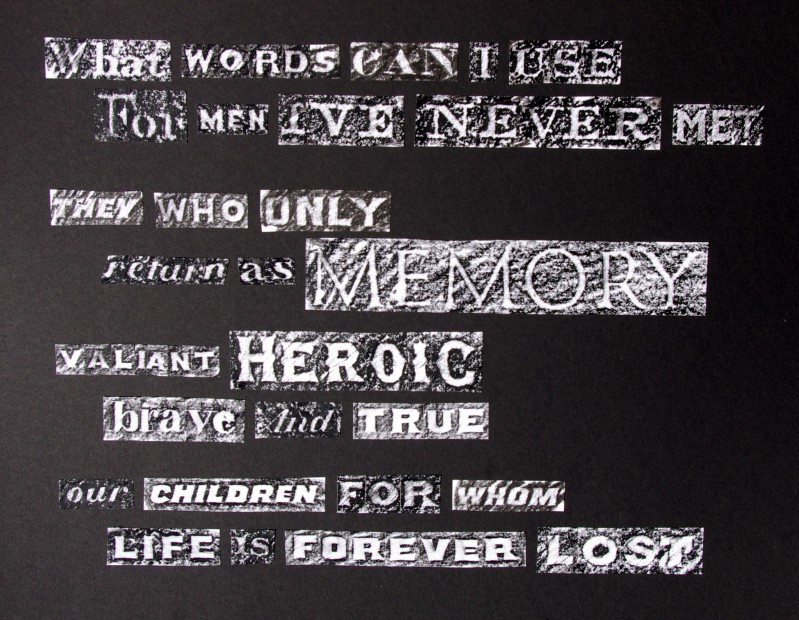 What WORDS CAN I USE
For MEN I'VE NEVER MET
THEY WHO ONLY
return as MEMORY
VALIANT HEROIC
brave And TRUE
our CHILDREN FOR WHOM
LIFE IS FOREVER LOST